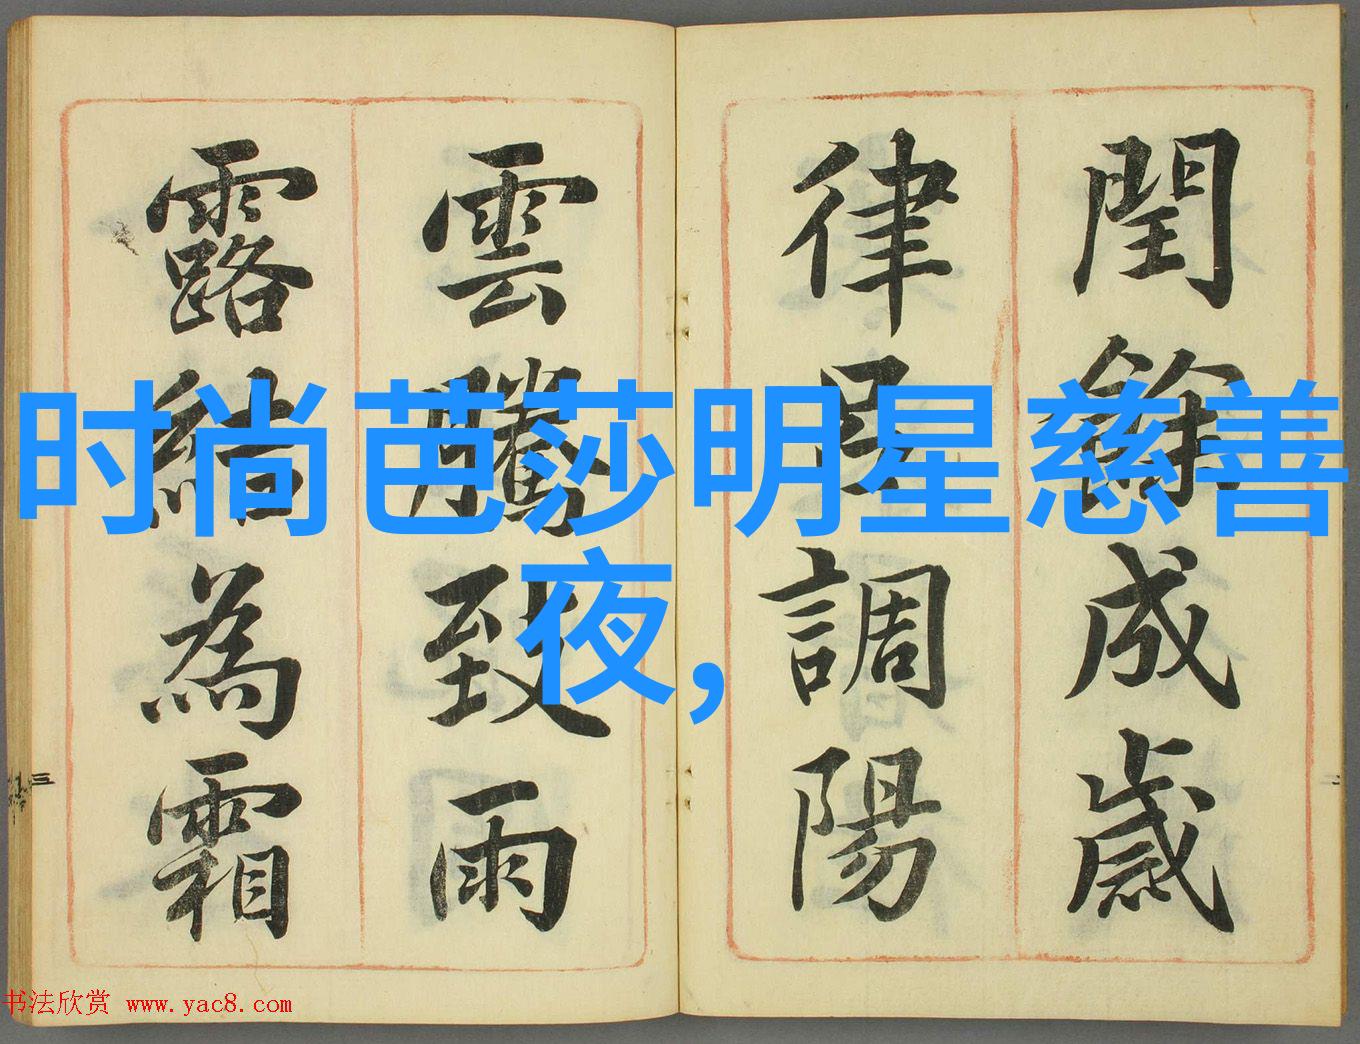 时尚芭莎明星慈善
夜,
閏餘成歲
律呂調陽
雲騰致雨
露結為霜
书法欣赏 www.yac8.com